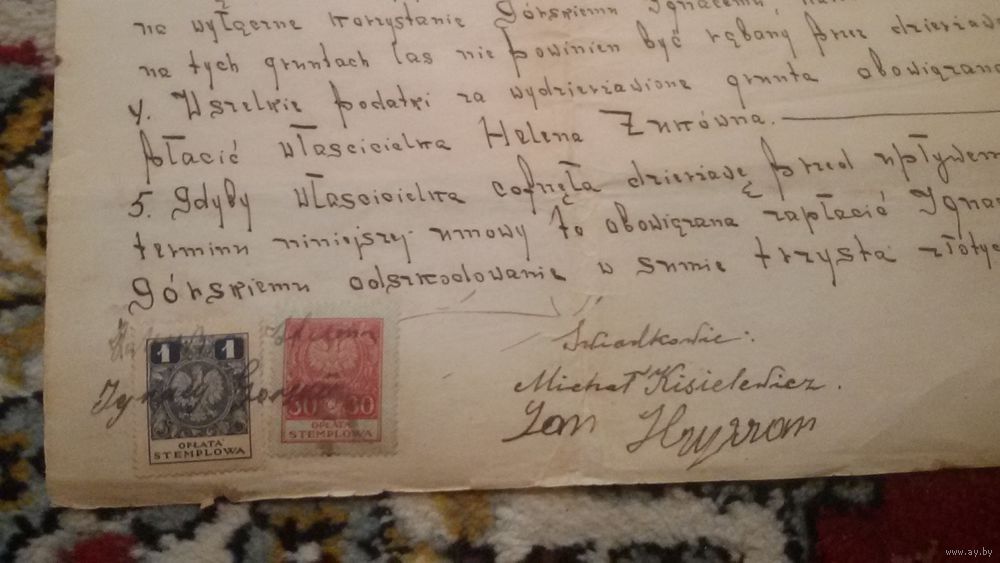 na wyłączne korzystanie Górskiemu Ignacemu,
na tych gruntach las nie powinien być rąbany przez dzierżaw
4. Wszelkie podatki za wydzierżawione grunta obowiązana
płacić właścicielka Helena Żukówna.
5. Gdyby właścicielka cofnęła dzierżawę przed upływem
terminu niniejszej umowy to obowiązana zapłacić Igna
Górskiemu odszkodowanie w sumie trzysta złotyc
Świadkowie:
Ignacy
Michał Kisielewicz.
Jan
1 1
OPŁATA
STEMPLOWA
30 30
OPŁATA
STEMPLOWA
www.ay.by